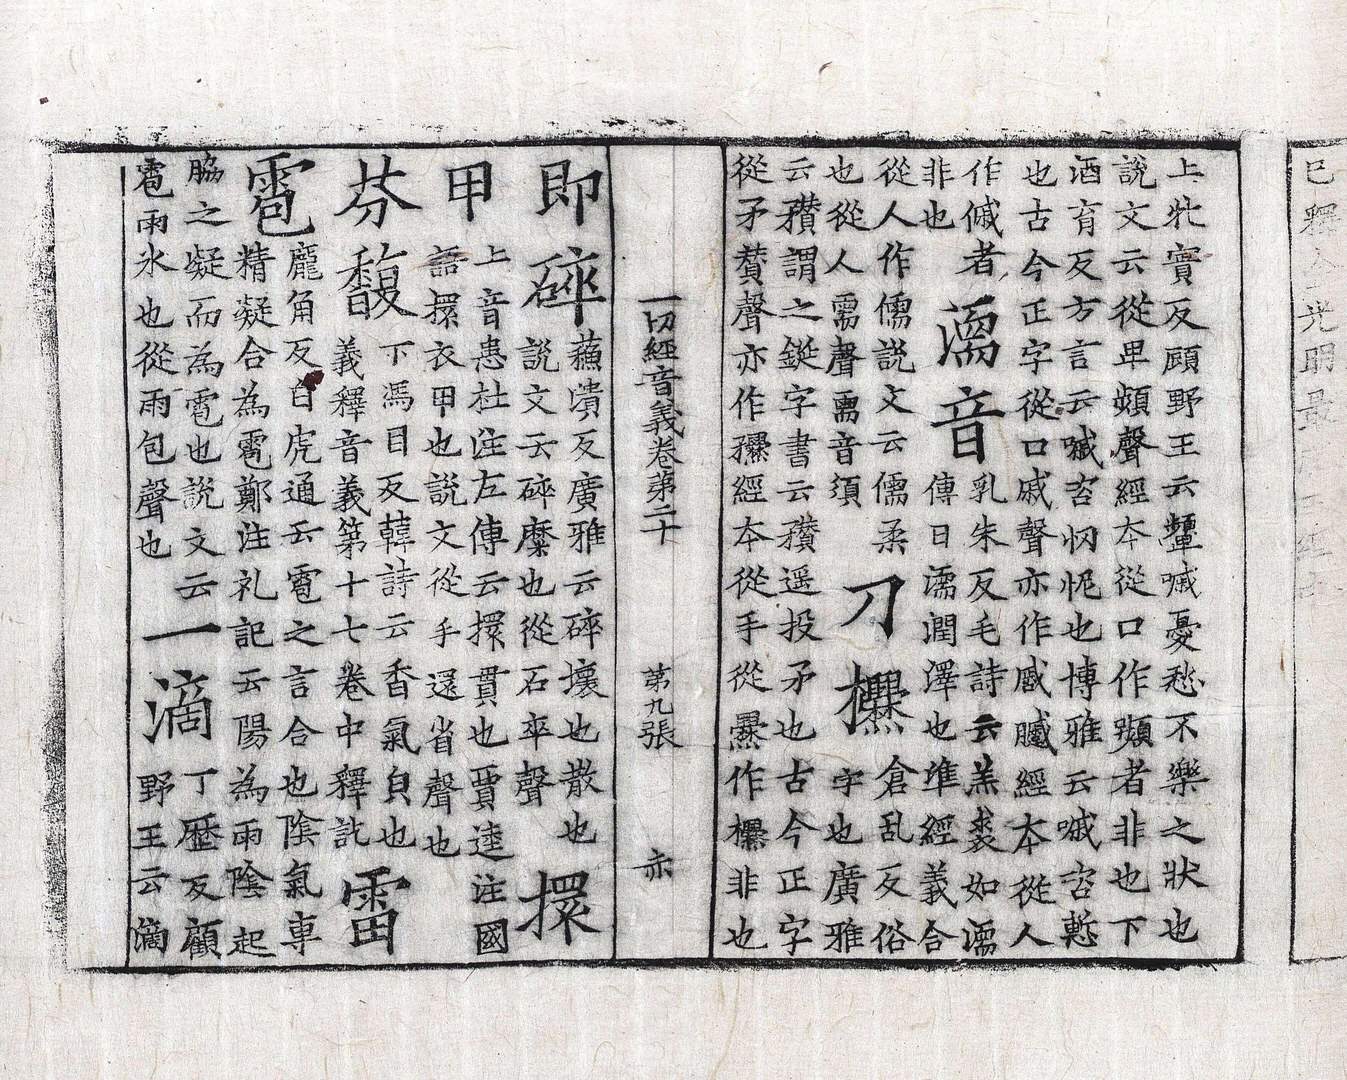 已釋
光明最
上牝賓反顧野王云顰嘁憂愁不樂之狀也
說文云從卑頻聲經本從口作嚬者非也下
酒育反方言云嘁咨忸怩也博雅云嘁咨慙
也古今正字從口戚聲亦作慼經本從人
作傶者
非也
濡音
乳朱反毛詩云羔裘如濡
傳曰濡潤澤也準經義合
從人作儒說文云儒柔
也從人需聲需音須
刀欑
倉乱反俗
字也廣雅
云䂎謂之鋋字書云䂎遥投矛也古今正字
從矛賛聲亦作經本從手從爨作欑非也
一切經音義卷第二十 第九張 亦
即碎
蘓潰反廣雅云碎壞也散也
說文云碎糜也從石卒聲
擐
甲
上音患杜注左傳云擐貫也賈逵注國
語擐衣甲也說文從手還省聲也
芬馥
下馮目反韓詩云香氣皃也
義釋音義第十七卷中釋訖
雷
雹
龐角反白虎通云雹之言合也陰氣專
精凝合為雹鄭注礼記云陽為雨陰起
脇之凝而為雹也說文云
雹雨氷也從雨包聲也
一滴
丁歷反顧
野王云滴